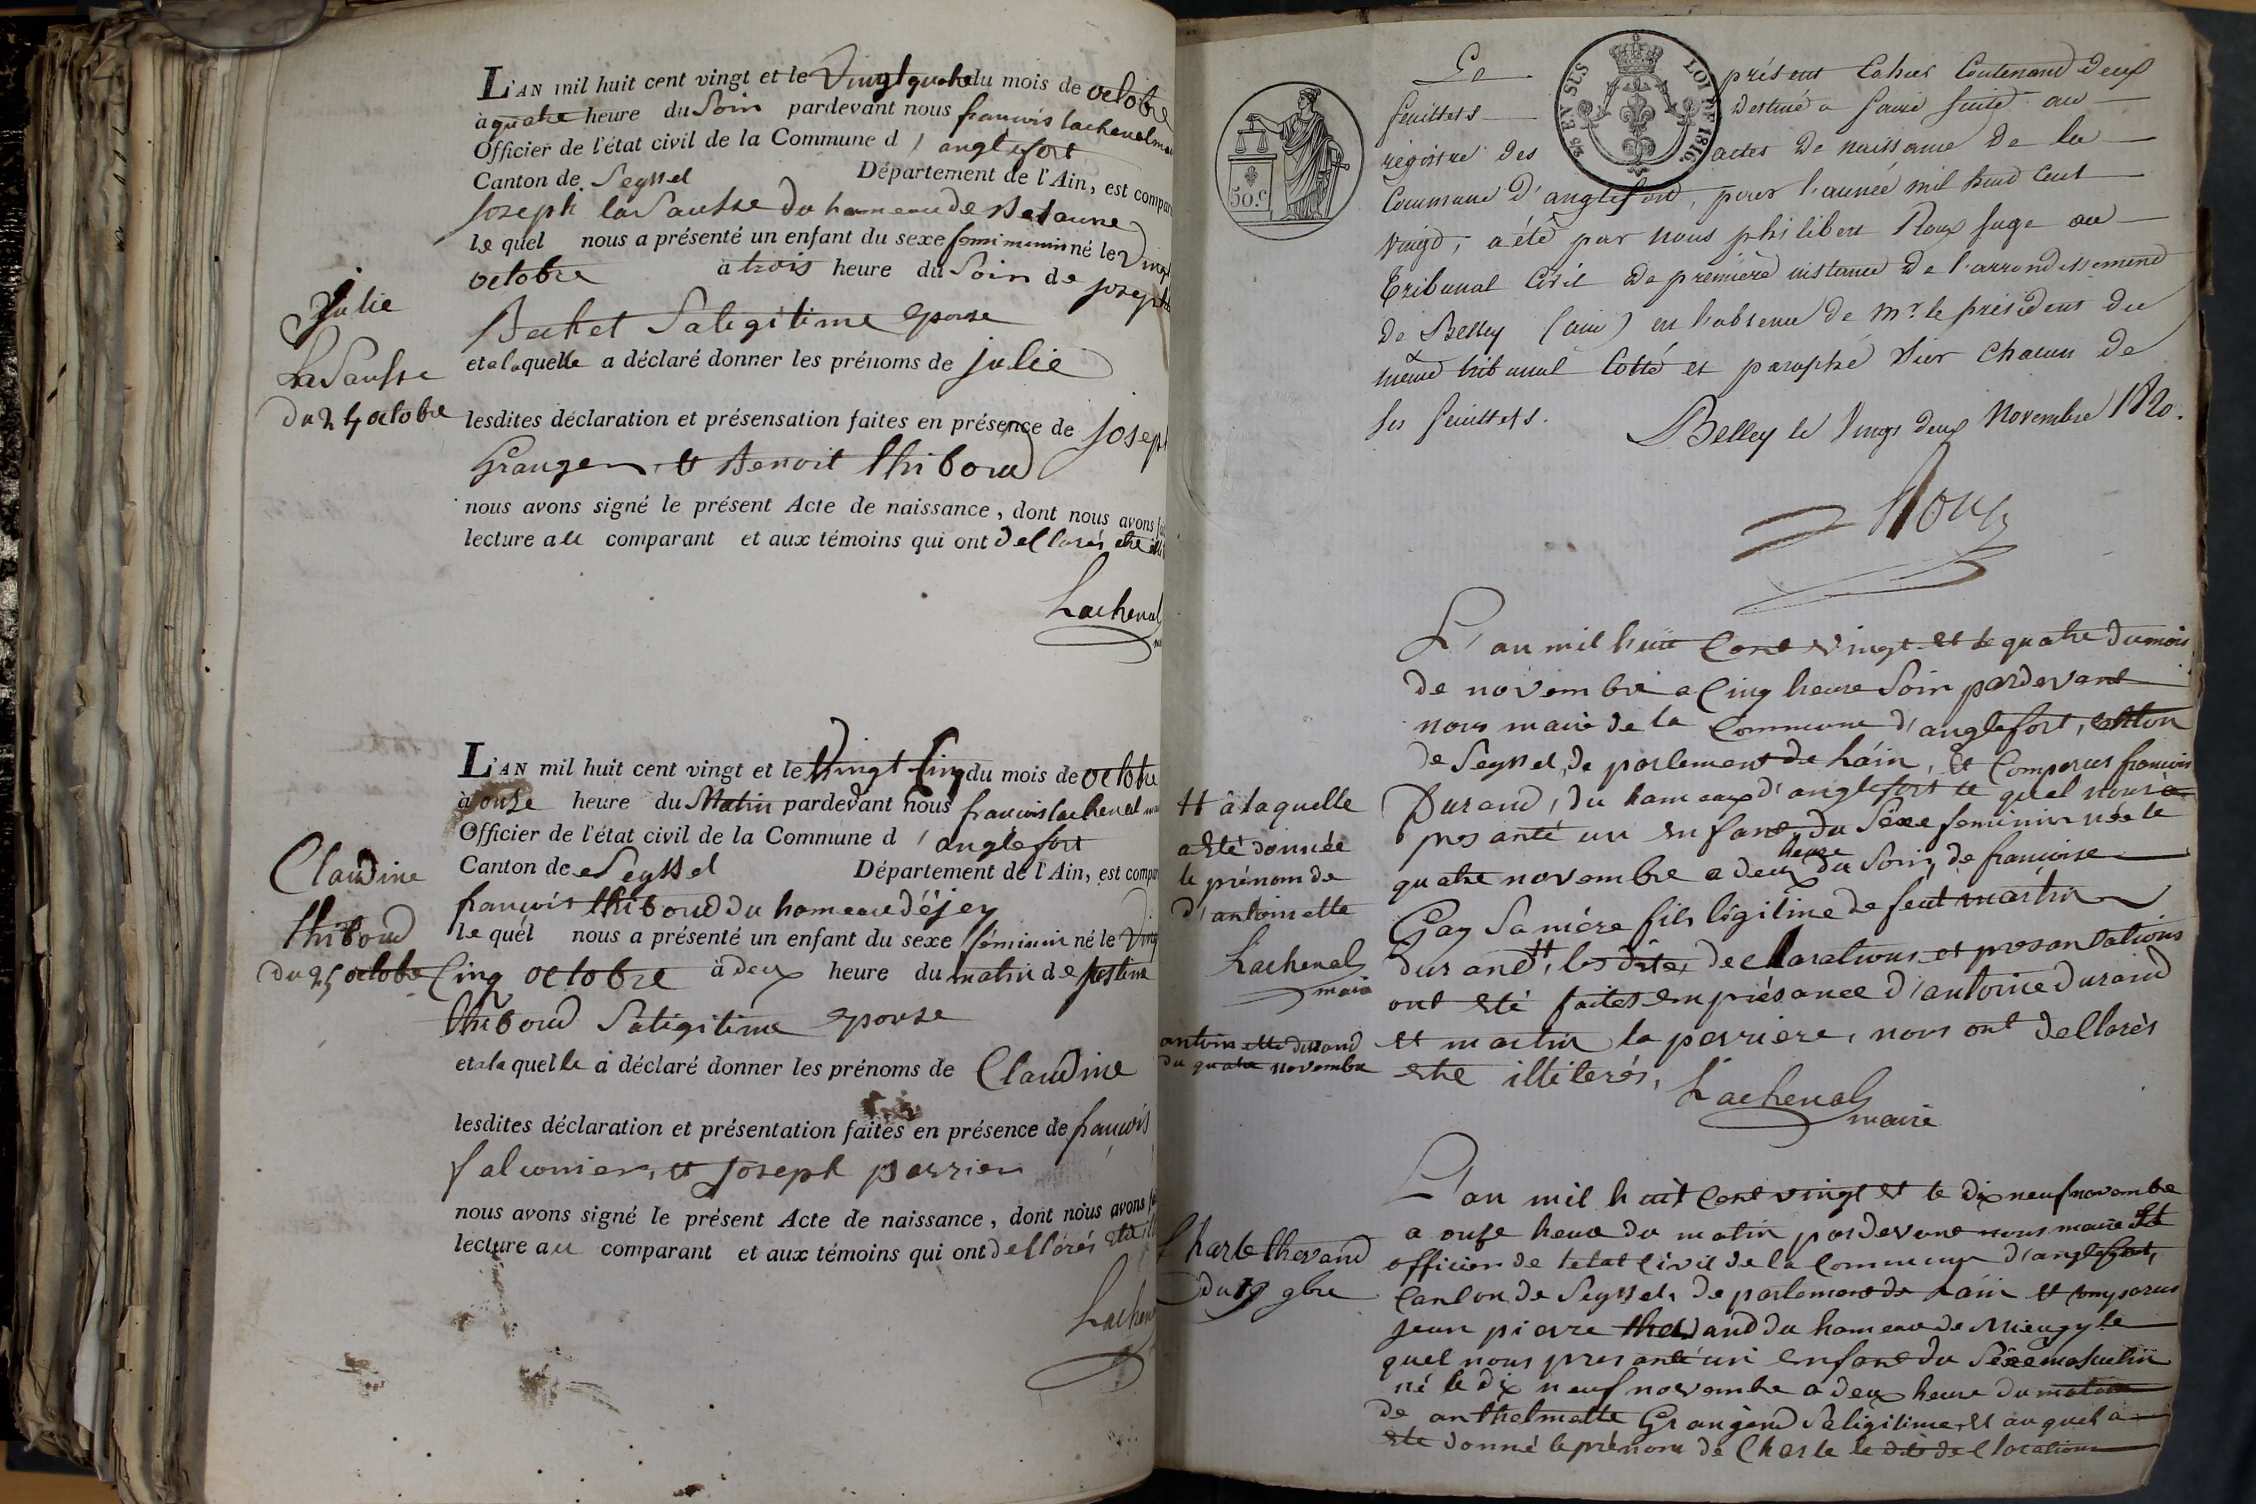 L'AN mil huit cent vingt et le Vingt quatre du mois de octobre
à quatre heure du Soir pardevant nous francois lachenal
Officier de l'état civil de la Commune d'anglefort
Canton de Seyssel Département de l'Ain, est compar
Joseph laSausse du hameau de
le quel nous a présenté un enfant du sexe né le Vingt
octobre a trois heure du Soir de joseph
Bachet Saligitime epouse
et a la quelle a déclaré donner les prénoms de julie
Julie
LaSausse
du 24 octobre
lesdites déclaration et présensation faites en présence de joseph
Granger et Benoit thiboud
nous avons signé le présent Acte de naissance, dont nous avons
lecture au comparant et aux témoins qui ont dellarés etre
Lachenal
L'AN mil huit cent vingt et le Vingt Cinq du mois de octobre
à onse heure du Matin pardevant nous francois lachenal
Officier de l'état civil de la Commune d'anglefort
Canton de Seyssel Département de l'Ain, est compar
francois thiboud du hameau déjey
le quel nous a présenté un enfant du sexe féminin né le Ving
Cinq octobre à deux heure du matin de justine
thiboud Saligitime epouse
et a la quelle a déclaré donner les prénoms de Claudine
Claudine
thiboud
du 25 octobre
lesdites déclaration et présentation faites en présence de francois
falconier, et Joseph perrier
nous avons signé le présent Acte de naissance, dont nous avons
lecture au comparant et aux témoins qui ont dellarés
Lachen
50.C
25 EN SUS LOI DE 1816
Le présent Cahier Contenand deux
feuillets destiné a faire suite au
régistre des actes de naissance de la
Commune d'anglefort, pour l'année mil huit Cent
vingt, a été par nous philibert Roux juge au
Tribunal Civil de première instance de l'arrondissement
de Belley (ain) en l'absence de Mr. le président du
même tribunal Cotté et paraphé Sur Chacun de
ses feuillets.
Belley le Vingt deux Novembre 1820.
Roux
L'an mil huit Cent vingt et le quatre du mois
de novembre a Cinq heure Soir pardevant
nous maire de la Commune d'anglefort, canton
de Seyssel, de parlement de l'ain, Et Comparus francois
Durand, du hameaux d'anglefort le quel nous a
pres anté un enfant, du Sexe feminin née le
quatre novembre a deux heure du Soir, de francoise
Gay Sa mére fils ligitime de feut martin
durand tt, les dite, declarations et presantations
ont eté faites en présance d'antoine durand
et martin la perriere, nous ont dellarés
etre illiterés,
Lachenal
maire
tt à laquelle
a été donnée
le prénom de
d'antoinette
Lachenal
maire
antoinette durand
du quatre novembre
L'an mil huit Cent vingt et le dix neuf novembre
a onse heure du matin pardevant nous maire Et
officier de letat Civil de la Commune d'anglefort,
Canton de Seyssel, de parlement de l'ain et Comparus
jean pierre thevand du hameau de Mieugy le
quel nous pres anté un enfant du Sexe masculin
né le dix neuf novembre a deux heure du matin
de anthelmette Grangend Saligitime, Et au quel a
ete donné le prénom de Charle le dite declaration
Charle thevand
du 19 9bre